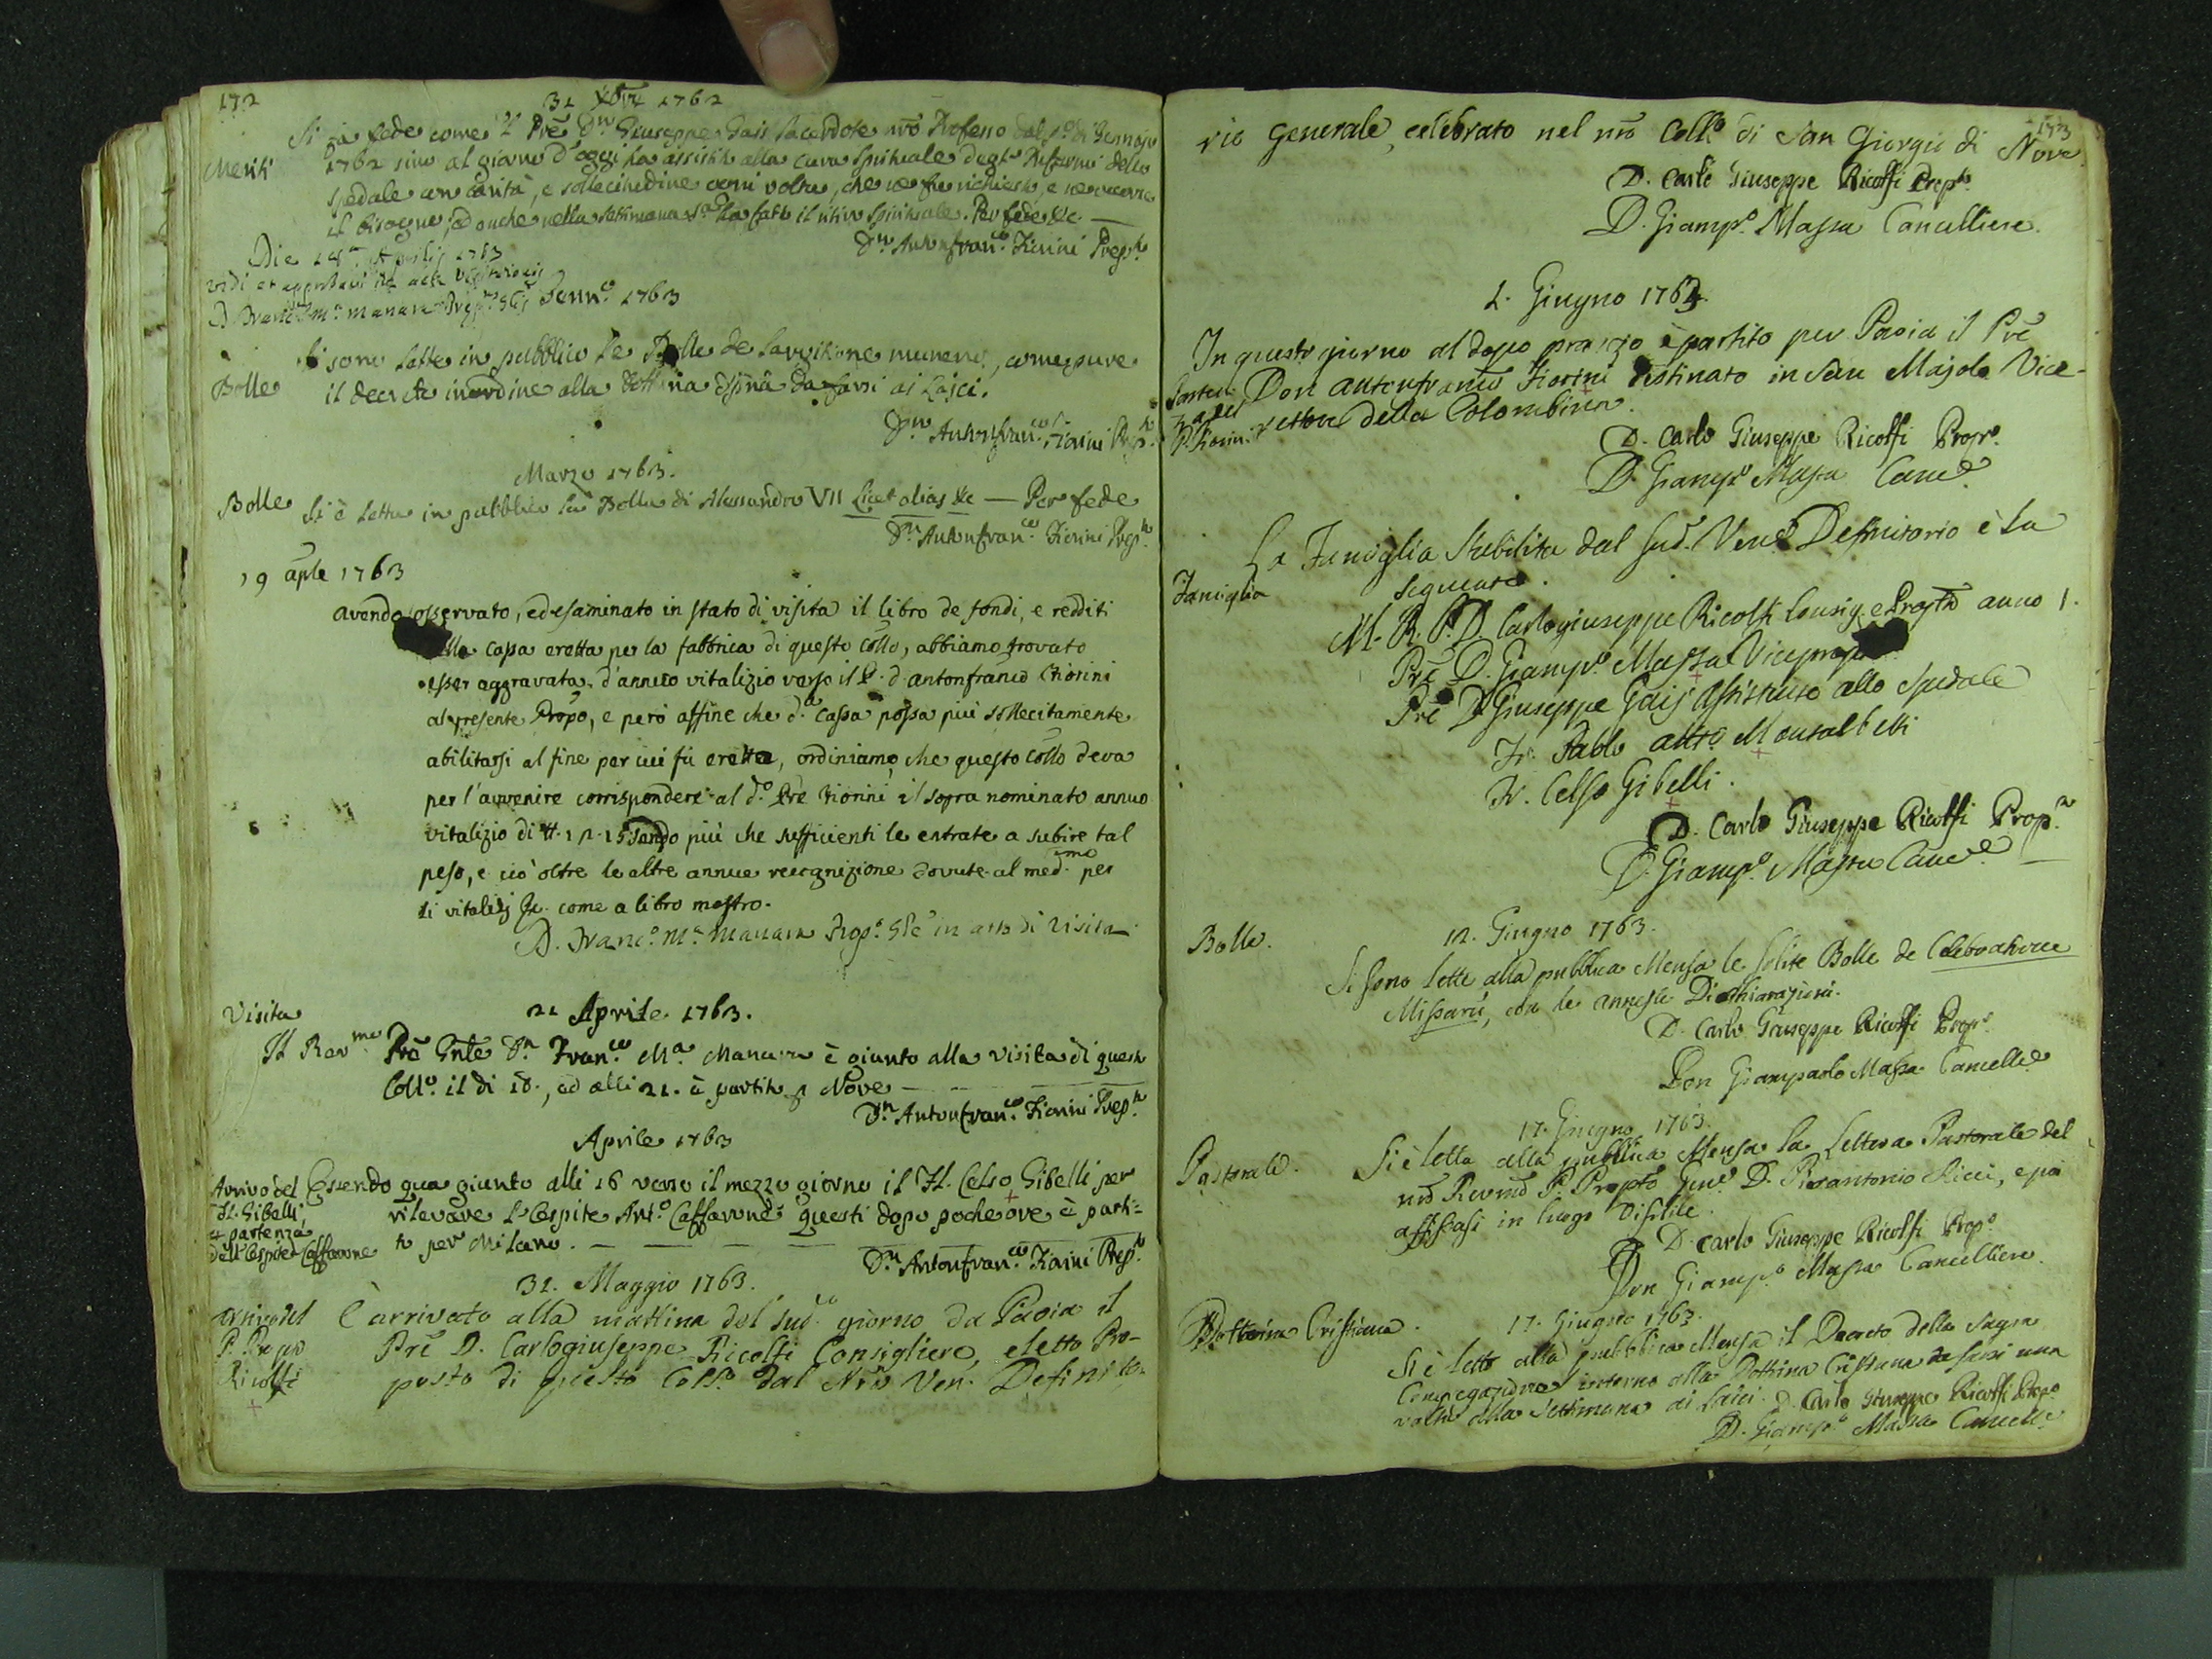 172
31 Xbre 1762
Si fa fede come il Pre Dn Giuseppe Gaij Sacerdote nro Professo dal pº di Gennajo
Meriti
1762 sino al giorno d'oggi ha assistito alla cura Spirituale degl' Infermi dello
Spedale con carità, e sollecitudine ogni volta, che ne fu richiesto, e ne occorre
il bisogno, ed anche nella settimana Sta ha fatto il ritiro Spirituale. Per fede &c.
Dn Antonfranco Fiorini Prepto
Die Aprilis 1763
vidi et approbavi in actu Visitationis
D Francus Ma manara Prepus Glis
Jennº 1763
Si sono lette in pubblico le Bolle de largitione munerum, come pure
Bolle
il decreto in ordine alla Dottrina Xpina da farsi ai Laici.
Dn Antonfranco Fiorini Prepto
Marzo 1763.
Bolle
Si è letta in pubblico la Bolla di Alessandro VII Licet alias &c — Per fede
Dn Antonfranco Fiorini Prepto
19 aple 1763
avendo osservato, ed esaminato in stato di visita il libro de fondi, e redditi
della cassa eretta per la fabbrica di questo Collo, abbiamo trovato
esser aggravata d'annuo vitalizio verso il P. d. antonfranco Fiorini
al presente Propo, e però affine che da cassa possa più sollecitamente
abilitarsi al fine per cui fù eretta, ordiniamo, che questo Collo deva
per l'avvenire corrispondere al do Pre Fiorini il sopra nominato annuo
vitalizio di sendo più che sufficienti le entrate a subire tal
peso, e ciò oltre le altre annue recognizione dovute al medmo per
li vitalizj &c. come a libro mastro.
D. Franco Ma manara Propo Gle in atto di Visita
Visita
21 Aprile 1763.
Il Revmo Pre Gnle Dn Franco Ma Manara è giunto alla visita di questo
Collo il dì 18., ed alli 21. è partito p Nove
Dn Antonfranco Fiorini Prepto
Aprile 1763
Arrivo del
Fl. Gibelli,
e partenza
dell'Ospite Caffarone
Essendo qua giunto alli 16 verso il mezzo giorno il Fl. Celso Gibelli per
rilevare l'Ospite Anto Caffarone questi dopo poche ore è parti=
to per Milano.
Dn Antonfranco Fiorini Prepto
31. Maggio 1763.
Arrivo del
P. Prepto
Ricolfi
È arrivato alla mattina del sudo giorno da Pavia il
Pre D. Carlogiuseppe Ricolfi Consigliere, eletto Pre-
posto di questo Collo dal Nro Ven. Definito-
173
rio Generale, celebrato nel nro Collo di San Giorgio di Nove.
D. Carlo Giuseppe Ricolfi Prepto
D. Giampo Massa Cancelliere.
1. Giugno 1763.
In questo giorno al dopo pranzo è partito per Pavia il Pre
Partenza del
P. Fiorini
Don Antonfranco Fiorini destinato in San Majolo Vice-
rettore della Colombina.
D. Carlo Giuseppe Ricolfi Propo
D. Giampo Massa Cance
La Famiglia stabilita dal sud. Vene Definitorio è la
Famiglia
seguente.
M. R. P. D. Carlogiuseppe Ricolfi Consig. e Prepto anno 1.
Pre D. Giampo Massa Viceprepo
Pre D Giuseppe Gaij Assistente allo Spedale
Fr. Pablo anto Montalbetti
Fr. Celso Gibelli.
D. Carlo Giuseppe Ricolfi Propo
D. Giampo Massa Cance
Bolle.
12. Giugno 1763.
Si sono lette alla pubblica Mensa le solite Bolle de Celebratione
Missarũ, con le annesse Dichiarazioni.
D. Carlo Giuseppe Ricolfi Propo
Don Giampaolo Massa Cancelle
17. Giugno 1763.
Pastorale.
Si è letta alla pubblica Mensa la Lettera Pastorale del
nro Revmo P. Prepto Gene D. Pierantonio Ricci, e poi
affissasi in luogo visibile.
D. Carlo Giuseppe Ricolfi Propo
Don Giampo Massa Cancelliere.
Dottrina Cristiana.
17. Giugno 1763.
Si è letto alla pubblica Mensa il Decreto della Sagra
Congregazione intorno alla Dottrina Cristiana da farsi una
volta alla Settimana ai laici. D. Carlo Giuseppe Ricolfi Propo
D. Giampo Massa Cancelle